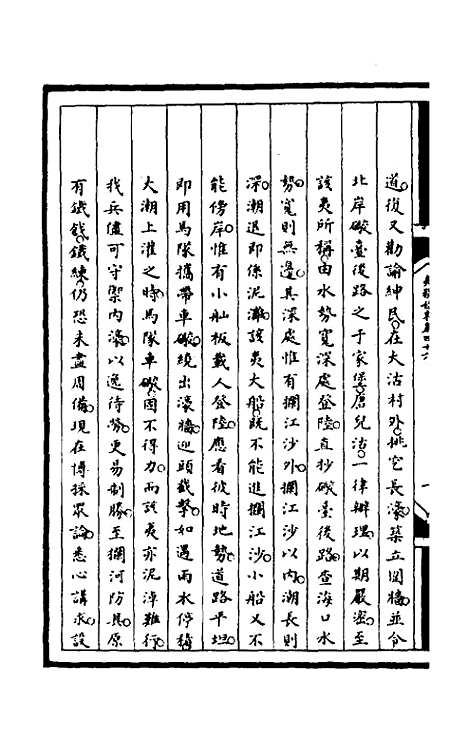 道復又勸諭紳民在大沽村外挑穵長濠築立圍牆並令
北岸礮臺後路之于家堡唐兒沽一律辦理以期嚴密至
該夷所稱由水勢寬深處登陸直抄礮臺後路查海口水
勢寬則無邊其深處惟有攔江沙外攔江沙以內潮長則
深潮退即係泥灘該夷大船既不能進攔江沙小船又不
能傍岸惟有小舢板載人登陸應看彼時地勢道路平坦
即用馬隊攜帶車礮繞出濠牆迎頭截擊如遇雨水停積
大潮上灘之時馬隊車礮固不得力而該夷亦泥淖難行
我兵儘可守禦內濠以逸待勞更易制勝至攔河防具原
有鐵戧鐵練仍恐未盡周備現在博採眾論悉心講求設